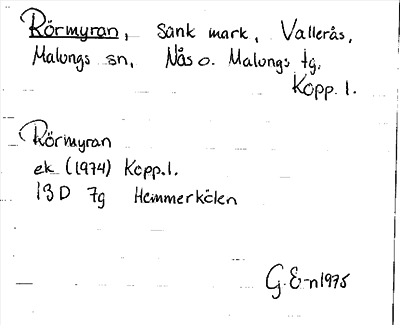 Rörmyran, Sank mark, Vallerås,
Malungs sn, Nås o. Malungs tg.
Kopp. l.
Rörmyran
ek (1974) Kopp. l.
13 D 7g Hemmerkölen
G. E-n 1975